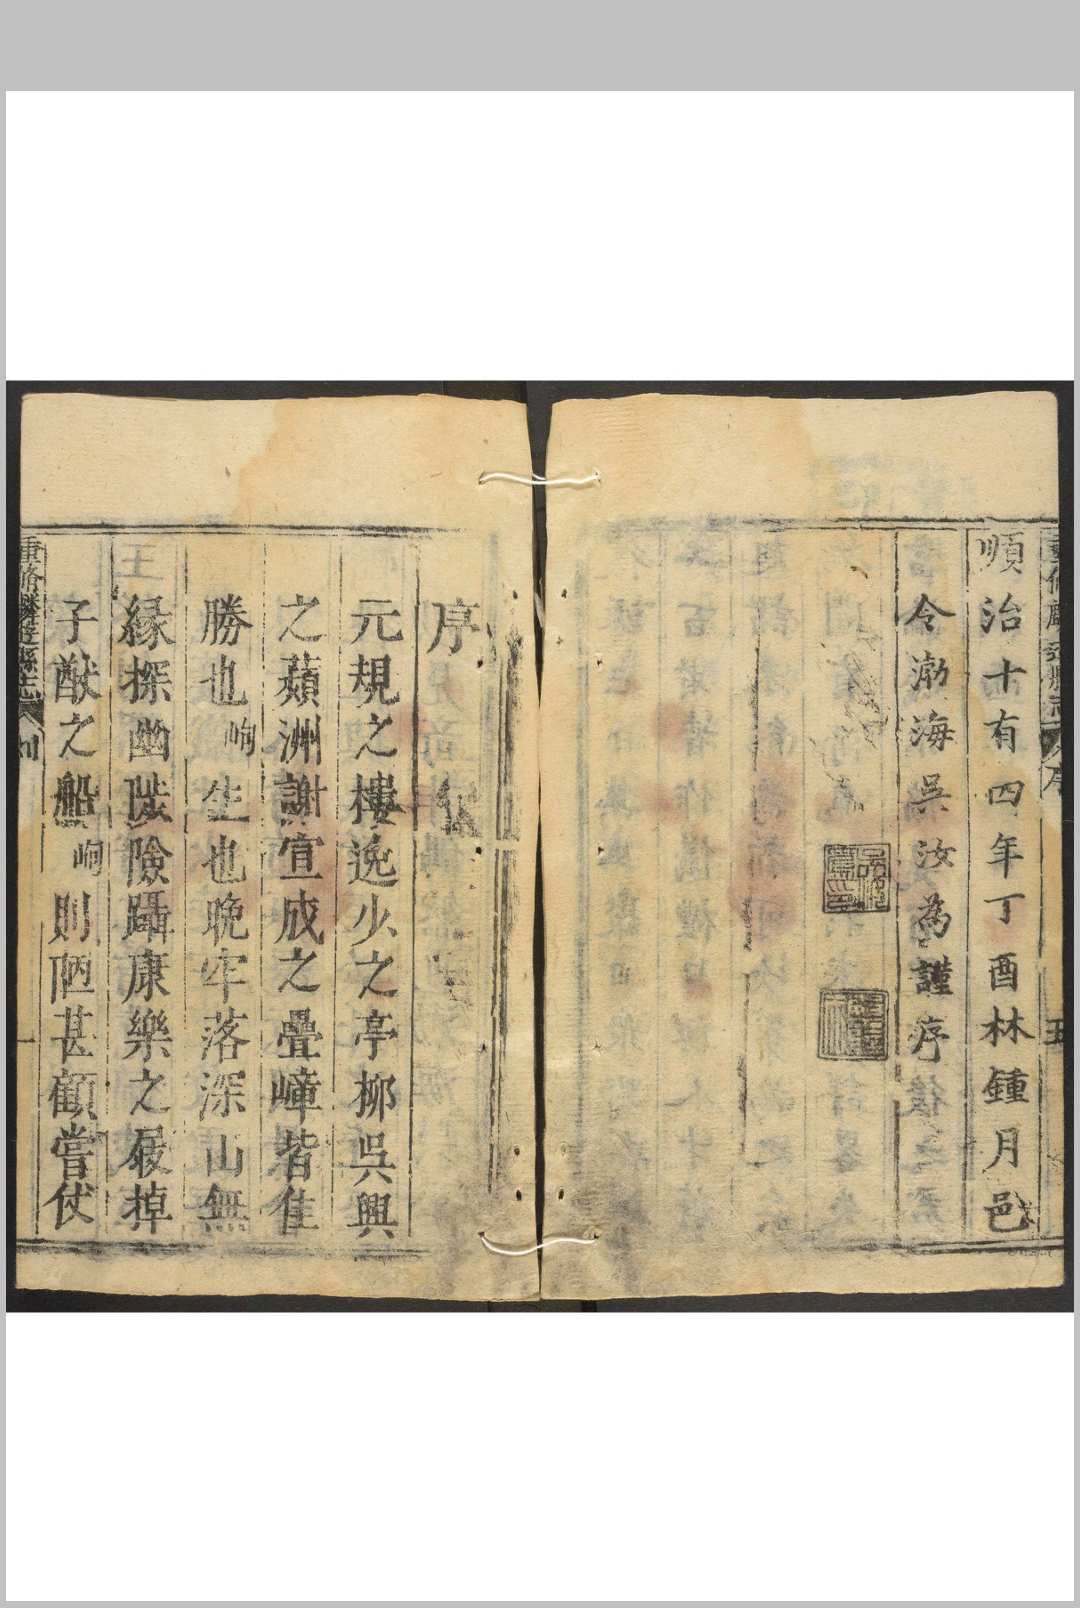 順治十有四年丁酉林鍾月邑
令渤海吳汝為謹序
五
序
元規之樓逸少之亭柳吳興
之蘋洲謝宣成之疊嶂皆佳
勝也峋生也晚牢落深山無
緣探幽陟險躡康樂之屐掉
子猷之船峋則陋甚顧嘗伏
重脩麟遊縣志
一